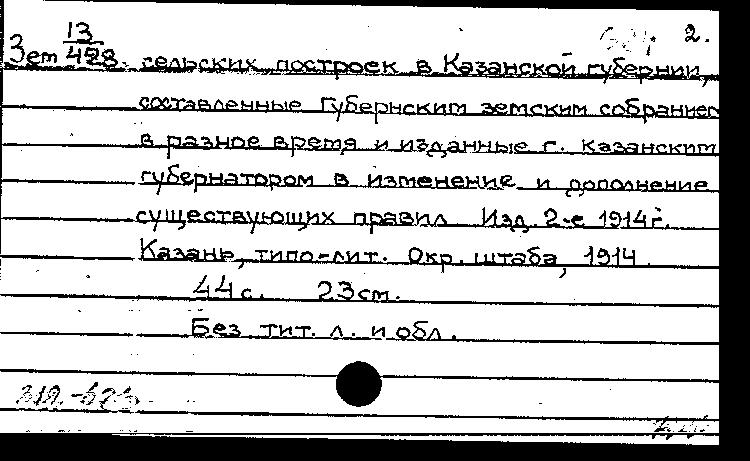 2.
Зем 13/428. сельских построек в Казанской губернии,
составленные Губернским земским собранием
в разное время и изданные г. Казанским
губернатором в изменение и дополнение
существующих правил Изд. 2-е 1914 г.
Казань, типо-лит. Окр. штаба, 1914.
44 с. 23 см.
Без тит. л. и обл.